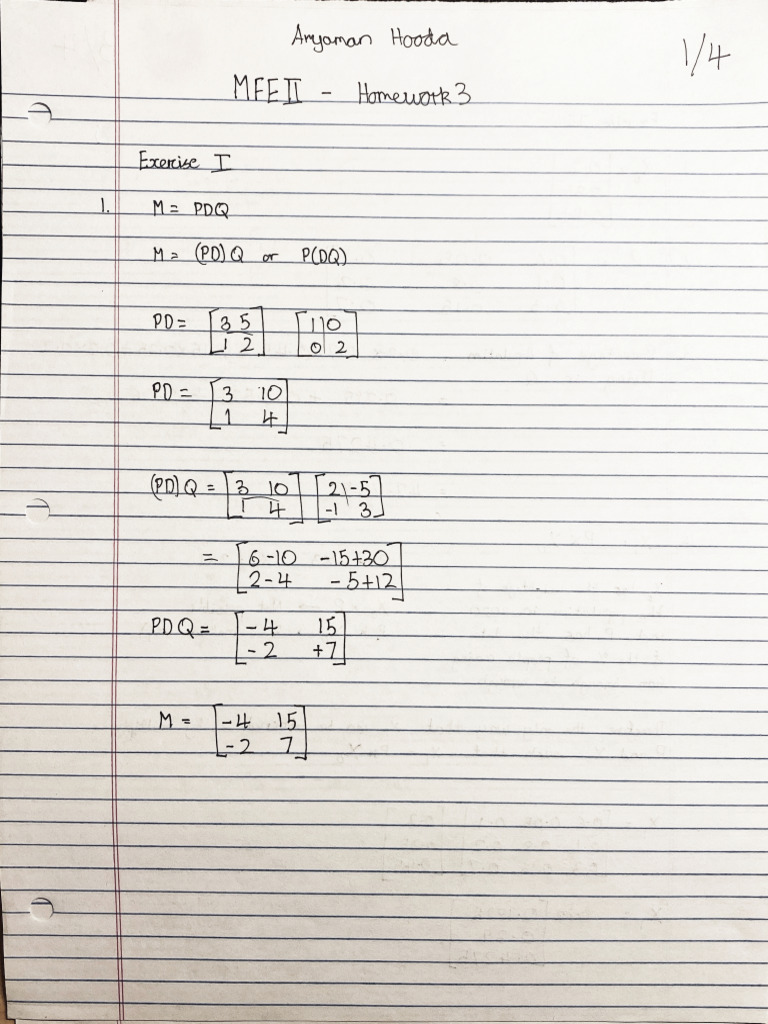 Aryaman Hooda
1/4
MFE II - Homework 3
Exercise I
1. M = PDQ
M = (PD) Q or P(DQ)
PD = [3 5 [1 0
1 2] 0 2]
PD = [3 10
1 4]
(PD) Q = [3 10 [2 -5
1 4] -1 3]
= [6-10 -15+30
2-4 -5+12]
PDQ = [-4 15
-2 +7]
M = [-4 15
-2 7]